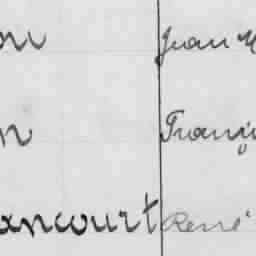 on Jean M
n Franç
ancourt René